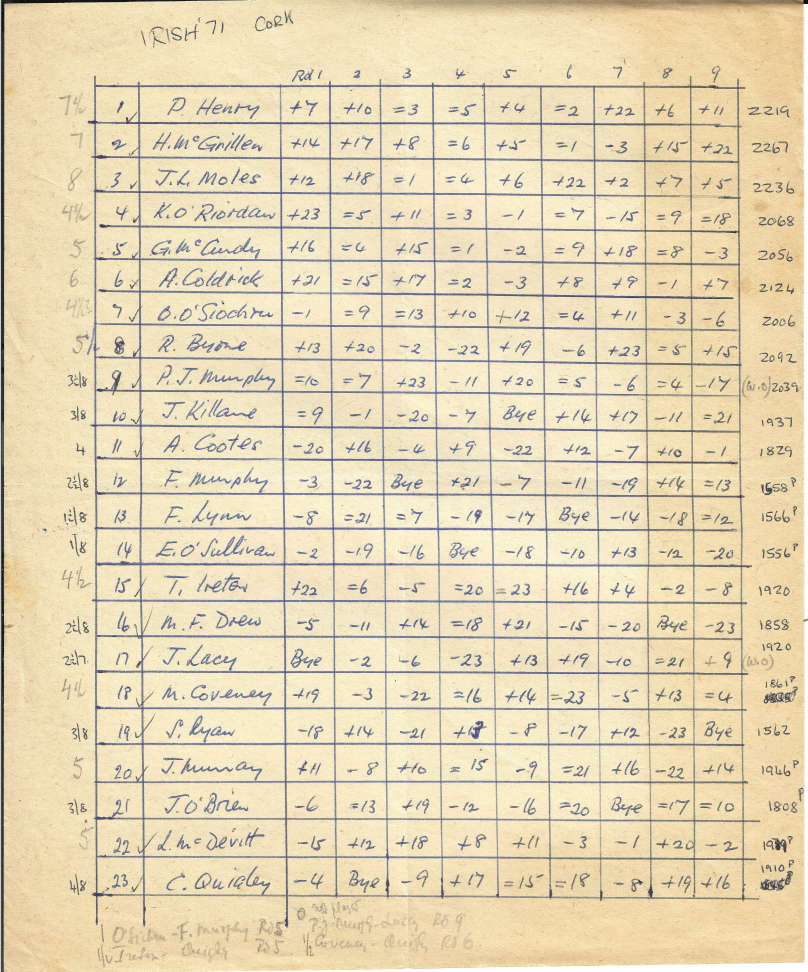 IRISH '71 CORK
Rd1 2 3 4 5 6 7 8 9
7½ 1 P. Henry +7 +10 =3 =5 +4 =2 +22 +6 +11 2219
7 2 H. McGrillen +14 +17 +8 =6 +5 =1 -3 +15 +22 2267
8 3 J.L. Moles +12 +18 =1 =4 +6 +22 +2 +7 +5 2236
4½ 4 K. O'Riordan +23 =5 +11 =3 -1 =7 -15 =9 =18 2068
5 5 G. McCurdy +16 =4 +15 =1 -2 =9 +18 =8 -3 2056
6 6 A. Coldrick +21 =15 +17 =2 -3 +8 +9 -1 +7 2124
7 O. O'Siochru -1 =9 =13 +10 +12 =4 +11 -3 -6 2006
5½ 8 R. Byrne +13 +20 -2 -22 +19 -6 +23 =5 +15 2092
3½/8 9 P.J. Murphy =10 =7 +23 -11 +20 =5 -6 =4 -17 (w.o) 2039
3/8 10 J. Killane =9 -1 -20 -7 Bye +14 +17 -11 =21 1937
4 11 A. Cootes -20 +16 -4 +9 -22 +12 -7 +10 -1 1829
2½/8 12 F. Murphy -3 -22 Bye +21 -7 -11 -19 +14 =13 1558P
1½/8 13 F. Lynn -8 =21 =7 -19 -17 Bye -14 -18 =12 1566P
1/8 14 E. O'Sullivan -2 -19 -16 Bye -18 -10 +13 -12 -20 1556P
4½ 15 T. Ireton +22 =6 -5 =20 =23 +16 +4 -2 -8 1920
2½/8 16 M.F. Drew -5 -11 +14 =18 +21 -15 -20 Bye -23 1858
2½/7 17 J. Lacy Bye -2 -6 -23 +13 +19 -10 =21 +9 (w.o) 1920
4½ 18 M. Coveney +19 -3 -22 =16 +14 =23 -5 +13 =4 1861P
3/8 19 S. Ryan -18 +14 -21 +13 -8 -17 +12 -23 Bye 1562
5 20 J. Murray +11 -8 +10 =15 -9 =21 +16 -22 +14 1946P
3/8 21 J. O'Brien -6 =13 +19 -12 -16 =20 Bye =17 =10 1808P
5 22 L. McDevitt -15 +12 +18 +8 +11 -3 -1 +20 -2
4/8 23 C. Quigley -4 Bye -9 +17 =15 =18 -8 +19 +16 1910P
1 O'Siochru - F. Murphy Rd5 0 not played P.J. Murphy - Lacy RD 9
½ Ireton - Quigley Rd5 ½ Coveney - Quigly RD 6